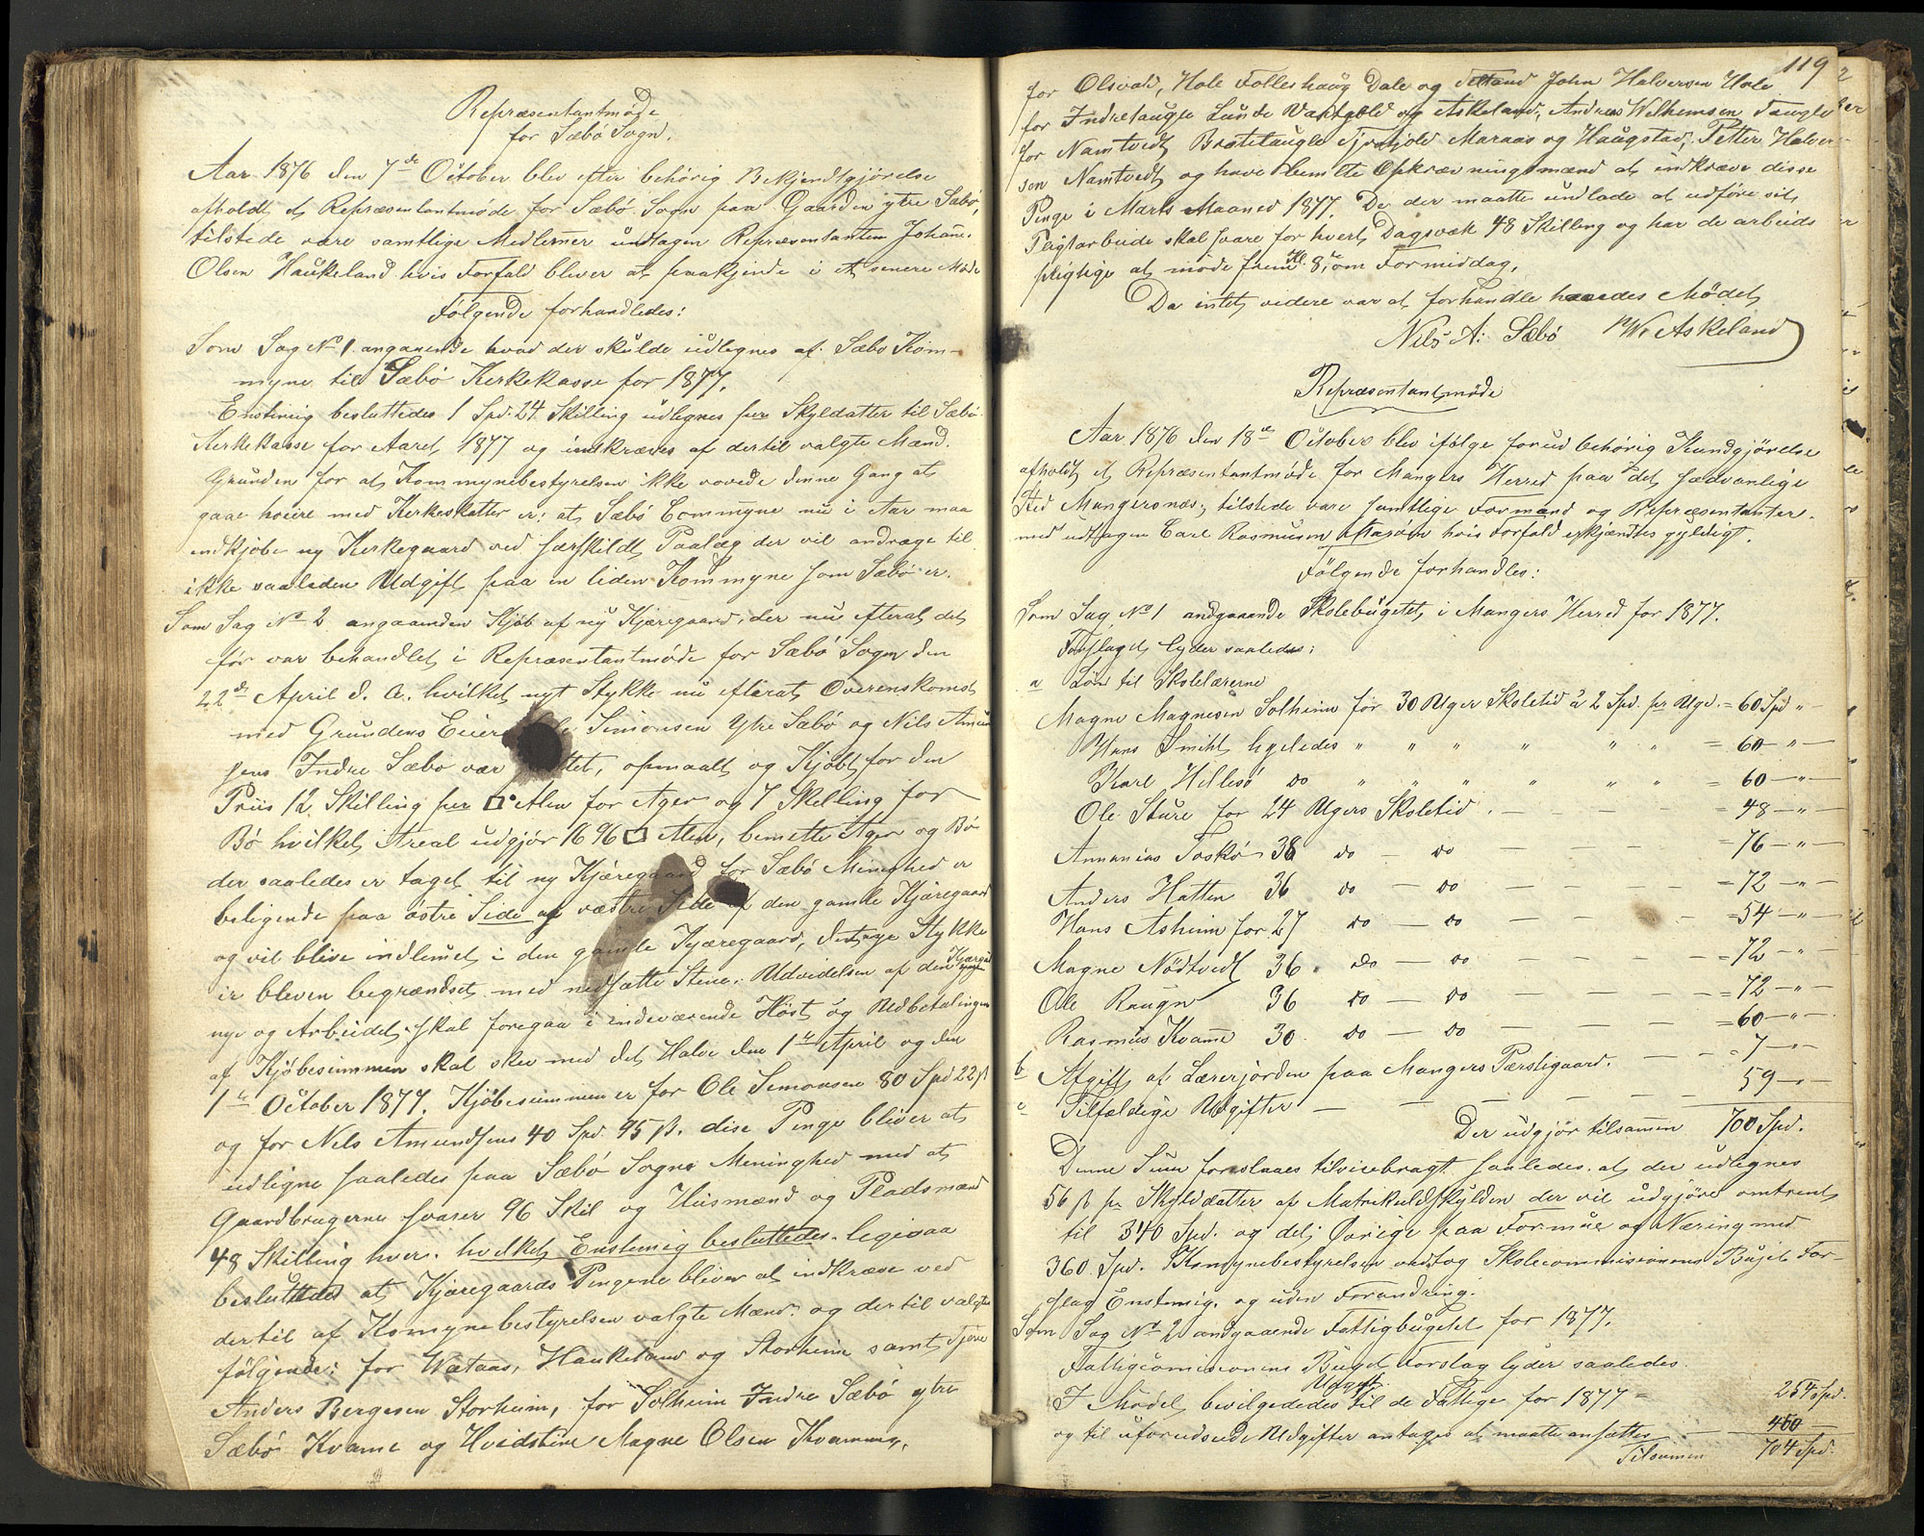 Repræsentantmøde
for Sæbø Sogn.
Aar 1876 den 7de October blev efter behørig Bekjendtgjørelse
afholdt et Repræsentantmøde for Sæbø Sogn paa Gaarden ytre Sæbø,
tilstede vare samtlige Medlemer undtagen Repræsentanten Johans.
Olsen Haukeland hvis Forfald bliver at paakjende i et senere Møde
Følgende forhandledes:
Som Sag No 1. angaaende hvad der skulde udlegnes af Sæbø Kom-
myne til Sæbø Kerkekasse for 1877.
Enstimig besluttedes 1 Spd. 24 Skilling udlegnes per Skyldatter til Sæbø
Kerkekasse for Aaret 1877 og indkræves af dertil valgte Mænd.
Grunden for at Kommynebestyrelsen ikke vovede denne Gang at
gaae høiere med Kerkeskatter er: at Sæbø Commyne nu i Aar maa
indkjøbe ny Kerkegaard ved særskildt Paalæg der vil andrage til
ikke saaliden Udgift paa en liden Kommyne som Sæbø er.
Som Sag No 2 angaaenden Kjøb af ny Kjæregaard, der nu efterat det
før var behandlet i Repræsentantmøde for Sæbø Sogn den
22de April d. A. hvilket nyt Stykke nu efterat Overenskomst
med Grundens Eiere Simonsen Ytre Sæbø og Nils Amun
sens Indre Sæbø var opmaalt og Kjøbt for den
Priis 12 Skilling per □ Alen for Ager og 7 Skelling for
Bø hvilket Areal udgjør 1696 □ Alen, bemelte Ager og Bø
der saaledes er taget til ny Kjæregaard for Sæbø Menighed er
beligende paa østre Side og væstre Side af den gamle Kjæregaard
og vil blive indlemet i den gamle Kjæregaard, det nye Stykke
er bleven begrændset med nedsatte Stene. Udvidelsen af den Kjæregaard
nye og Arbeidet skal foregaa i indeværende Høst og Udbetalingen
af Kjøbesummen skal skee med det Halve den 1te April og den
1te October 1877. Kjøbesummen er for Ole Simonsen 80 Spd 22 ß
og for Nels Amundsens 40 Spd. 95 ß. disse Penge bliver at
udligne saaledes paa Sæbø Sogns Meninghed med at
Gaardbrugerne svarer 96 Skil og Husmænd og Pladsmænd
48 Skilling hver. hvilket Enstemig besluttedes. legesaa
besluttedes at Kjæregaards Pengene bliver at indkræve ved
dertil af Komynebestyrelsen valgte Mænd. og der til valgtes
følgende: for Wataas, Haukeland og Storheim samt
Anders Bergesen Storheim, for Solheim Indre Sæbø ytre
Sæbø Kvame og Hvidsteen Magne Olsen Kvamme,
119
for Olsvold, Hole Folleshaug Dale og Fetland John Halversen Hole
for Indretaugle Lunde Vaktgald og Askeland, Andreas Wilhemsen Taugle
for Namtvedt Brætetaugle Maraas og Haugstad, Petter Halver-
sen Namtvedt og have bemelte Opkrævningsmænd at indkræve disse
Penge i Marts Maaned 1877. De der maatte undlade at udføre sit
Pligtarbeide skal svare for hvert Dagsværk 48 Skilling og har de arbeids
pligtige at møde frem Kl. 8 om Formiddag,
Da intet videre var at forhandle hævedes Mødet
Nils A: Sæbø Askeland
Repræsentantmøde
Aar 1876 den 18de October blev ifølge forud behørig Kundgjørelse
afholdt et Repræsentantmøde for Mangers Herred paa det sædvanlige
Sted Mangersnæs, tilstede vare samtlige Formænd og Repræsentanter.
med undtagen Carl Rasmusen hvis Forfald erkjændtes gyldigt.
Følgende forhandles:
Som Sag No 1 andgaaende Skolebugetet i Mangers Herred for 1877.
Forslaget lyder saaledes:
a Løn til Skolelærerne
Magne Magnesen Solheim for 30 Uger Skoletid à 2 Spd. pr Uge. = 60 Spd " -
Hans Smiht lygeledes " " " " " " = 60 - " -
Karl Hillesø do " " " " " " = 60 - " -
Ole Sture for 24 Ugers Skoletid - - = 48 - " -
Annanias Toskø 38 do - do - - - = 76 - " -
Anders Hatten 36 do - do - - - = 72 - " -
Hans Asheim for 27 do - do - - - = 54 - " -
Magne Nødtvedt 36 do - do - - - = 72 - " -
Ole Raugn 36 do - do - - - = 72 - " -
Rasmus Kvame 30 do - do - - - = 60 - " -
b Afgift af Lærerjorden paa Mangers Præstegaard. - - = 7 - " -
c Tilfældige Udgifter - - - - 59 - " -
Der udgjør tilsamen 700 Spd.
Denne Sum foreslaaes tilveiebragt saaledes at der udlegnes
56 ß pr Skyldatter af Matrikuldskylden der vil udgjøre omtrent
til 340 Spd. og det Øvrige paa Formue og Næring med
360 Spd. Komynebestyrelsen vedtog Skolecommisionens Bujet For-
slag Enstemig og uden Forandring.
Som Sag No 2 andgaaende Fattigbugetet for 1877.
Fattigcomisionens Buget Forslag lyder saaledes.
I Mødet bevilgededes Udgift til de Fattige for 1877 = 254 Spd.
og til uforudseede Udgifter antages at maatte ansættes - 450 -
Tilsamen 704 Spd.